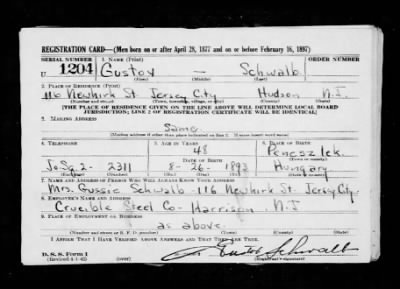 REGISTRATION CARD—(Men born on or after April 28, 1877 and on or before February 16, 1897)
SERIAL NUMBER 1. NAME (Print) ORDER NUMBER
U 1204 Gustov — Schwalb
(First) (Middle) (Last)
2. PLACE OF RESIDENCE (Print)
116 Newkirk St Jersey City Hudson N.J.
(Number and street) (Town, township, village, or city) (County) (State)
[THE PLACE OF RESIDENCE GIVEN ON THE LINE ABOVE WILL DETERMINE LOCAL BOARD
JURISDICTION; LINE 2 OF REGISTRATION CERTIFICATE WILL BE IDENTICAL]
3. MAILING ADDRESS
Same
(Mailing address if other than place indicated on line 2. If same insert word same)
4. TELEPHONE 5. AGE IN YEARS 6. PLACE OF BIRTH
48 Peneszlek
DATE OF BIRTH (Town or county)
Jo-Sq 2- 2311 8-26-1893 Hungary
(Exchange) (Number) (Mo.) (Day) (Yr.) (State or country)
7. NAME AND ADDRESS OF PERSON WHO WILL ALWAYS KNOW YOUR ADDRESS
Mrs. Gussie Schwalb - 116 Newkirk St. Jersey City.
8. EMPLOYER'S NAME AND ADDRESS
Crucible Steel Co- Harrison, N.J
9. PLACE OF EMPLOYMENT OR BUSINESS
as above
(Number and street or R. F. D. number) (Town) (County) (State)
I AFFIRM THAT I HAVE VERIFIED ABOVE ANSWERS AND THAT THEY ARE TRUE.
D. S. S. Form 1 Gustov Schwalb
(Revised 4-1-42) (Registrant's signature)